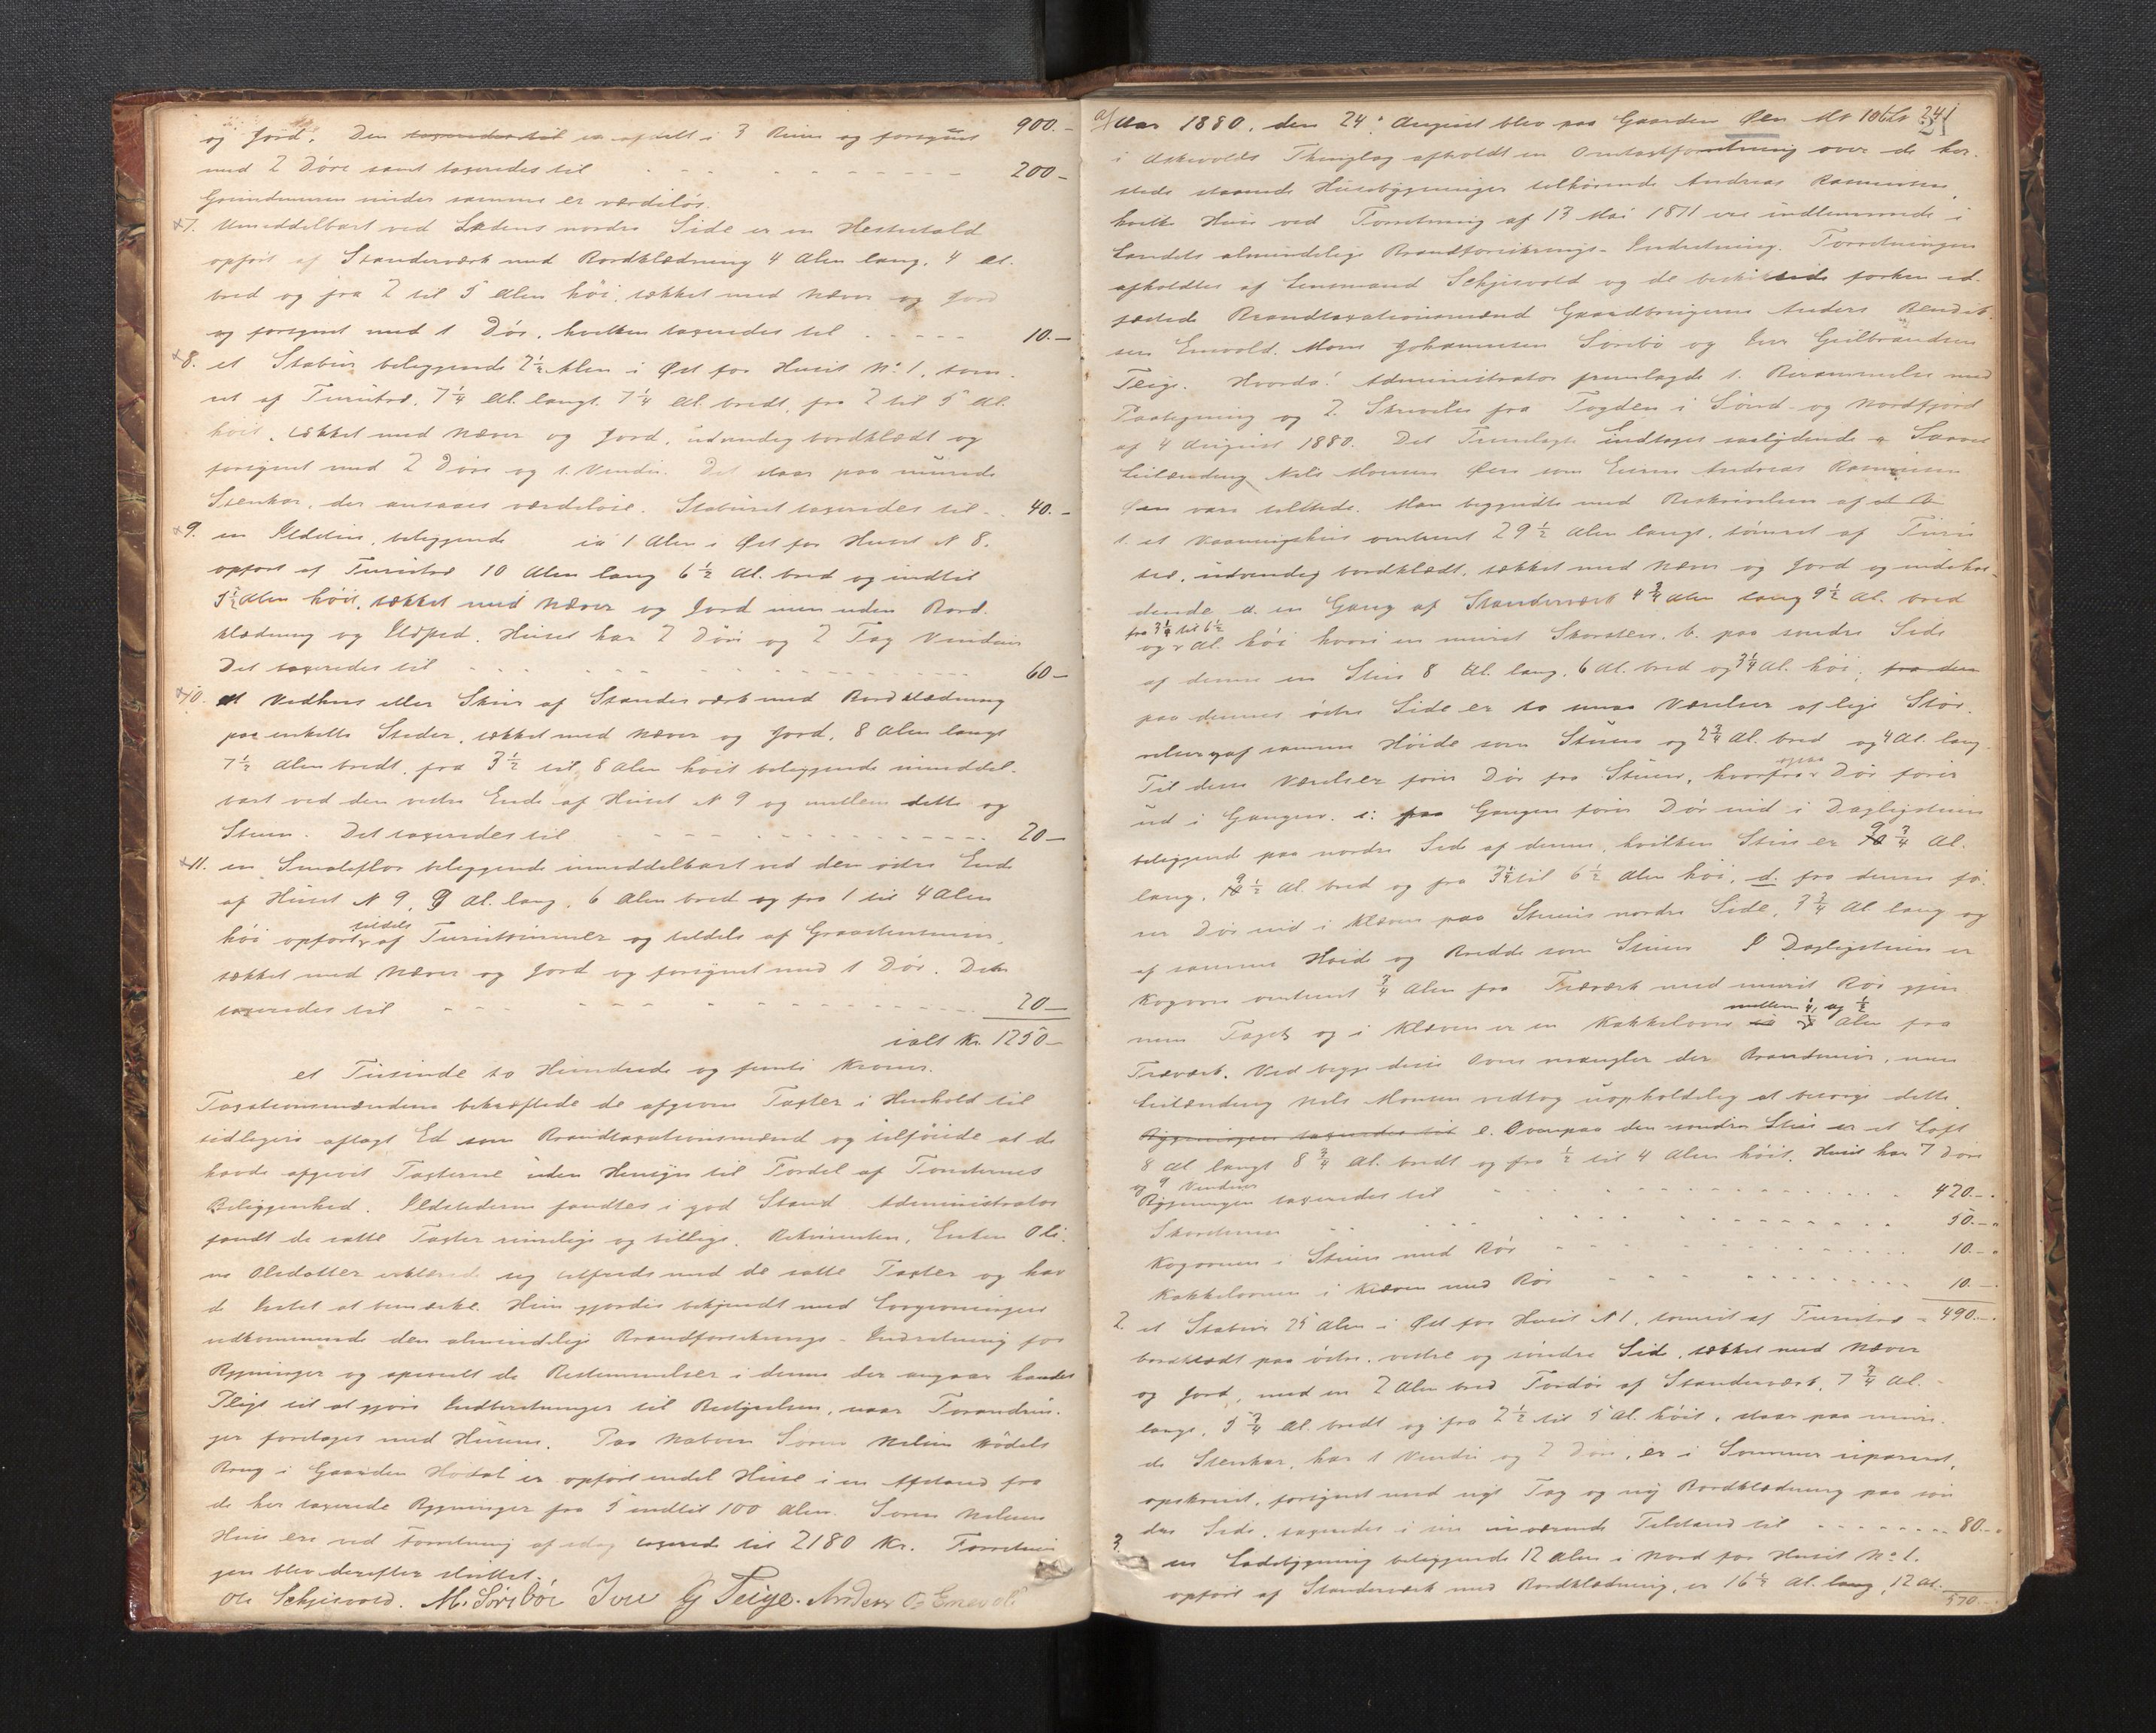 og Jord. Den taxeredes til er afdelt i 3 Rum og forsynet 900.-
med 2 Døre samt taxeredes til 200-
Grundmuren under samme er værdiløs.
7. Umiddelbart ved Ladens nordre Side er en Hestestald
opført af Standerværk med Bordklædning 4 Alen lang, 4 Al.
bred og fra 2 til 5 Alen höi, tækket med Næver og Jord
og forsynet med 1 Dör, hvilken taxeredes til 10.-
8. et Stabur beliggende 2½ Alen i Øst for Huset No 1, töm-
ret af Furutræ, 7¼ Al. langt, 7¼ Al. bredt, fra 2 til 5 Al.
höit, tækket med Næver og Jord, udvendig bordklædt og
forsynet med 2 Döre og 1 Vindu. Det staar paa murede
Stenkar, der ansaaes værdilöse. Staburet taxeredes til 40.-
9. en Ildhus, beliggende ca 1 Alen i Øst for Huset N 8.
opført af Furutræ 10 Alen lang 6½ Al. bred og indtil
5½ Alen höit, tækket med Næver og Jord men uden Bord-
klædning og Ildsted. Huset har 2 Döre og 2 Fag Vinduer
Det taxeredes til 60-
10. et Vedhus eller Skur af Standerværk med Bordklædning
paa enkelte Steder, tækket med Næver og Jord, 8 Alen langt
7½ Alen bredt, fra 3½ til 8 Alen höit beliggende umiddel-
bart ved den vestre Ende af Huset N 9 og mellem dette og
Stuen. Det taxeredes til 20-
11. en Smaleflor beliggende umiddelbart ved den østre Ende
af Huset N 9, 9 Al. lang, 6 Alen bred og fra 1 til 4 Alen
höi opført tildels af Furutømmer og tildels af Graastensmur,
tækket med Næver og Jord og forsynet med 1 Dör. Den
taxeredes til 20-
ialt Kr. 1250-
et Tusinde to Hundrede og femti Kroner.
Taxationsmændene bekræftede de afgivne Taxter i Henhold til
tidligere aflagt Ed som Brandtaxationsmænd og tilföiede at de
havde afgivet Taxterne uden Hensyn til Fordel af Tomternes
Beliggenhed. Ildstederne fandtes i god Stand. Administrator
fandt de satte Taxter rimelige og billige. Rekvirenten, Enken Oli-
ne Olsdatter erklærede sig tilfreds med de satte Taxter og hav-
de Intet at bemærke. Hun gjordes bekjendt med Lovgivningen
vedkommende den almindelige Brandforsikrings-Indretning for
Bygninger og specielt de Bestemmelser i denne der angaar hendes
Pligt til at gjöre Indberetninger til Bestyrelsen, naar Forandrin-
ger foretages med Husene. Paa Naboen Søren Nelsen Hödels
Brug i Gaarden Hödal er opført endel Huse i en Afstand fra
de her taxerede Bygninger fra 5 indtil 100 Alen. Sørens Nelsens
Huse ere ved Forretning af idag taxerede til 2180 Kr. Forretnin-
gen blev derefter sluttet.
Ole Schjisvold. M. Sørebøe Iver G Teige. Anders B. Enevold
Aar 1880, den 24. August blev paa Gaarden Øen Mt No 106 Lt 241
i Askevolds Thinglag afholdt en Omtaxtforretning over de her-
steds staaende Husebygninger tilhørende Andreas Rasmussen
hvilke Huse ved Forretning af 13 Mai 1871 ere indlemmede i
Landets almindelige Brandforsikrings-Indretning. Forretningen
afholdtes af Lensmand Schjisvold og de beskikkede forhen ed-
fæstede Brandtaxationsmænd Gaardbrugerne Anders Bendik-
sen Enevold. Mons Johannessen Sørebø og Iver Gulbrandsen
Teige. Hvorda! Administrator fremlagde 1. Berammelse med
Paategning og 2. Skrivelse fra Fogden i Sönd- og Nordfjord
af 4 August 1880. Det Fremlagte indtages saalydende Saavel
Leilænding Nils Monsen Øen som Eieren Andreas Rasmussen
Øen vare tilstede. Man begyndte med Beskrivelsen af
1. et Vaaningshus omtrent 29½ Alen langt, tömret af Furu-
træ, udvendig bordklædt, tækket med Næver og Jord og indehol-
dende a. en Gang af Standerværk 4¾ Alen lang 9½ Al. bred
og fra 3¼ til 6½ Al. höi hvori en muret Skorsten, b. paa sondre Side
af denne en Stue 8 Al. lang, 6 Al. bred og 3¼ Al. höi, fra den
paa dennes østre Side er to smaa Værelser af lige Stör-
relse og af samme Höide som Stuen og 2¾ Al. bred og 4 Al. lang.
Til disse Værelser förer Dör fra Stuen, hvorfra ogsaa Dör förer
ud i Gangen. c: fra Gangen förer Dör ind i Dagligstuen
beliggende paa nordre Side af denne, hvilken Stue er 9¾ Al.
lang, 9½ Al. bred og fra 3¼ til 6½ Alen höi, d. fra denne fö-
rer Dör ind i Kleven paa Stuens nordre Side, 3¾ Al lang og
af samme Höide og Bredde som Stuen. I Dagligstuen er
Kogovn omtrent ¾ Alen fra Træværk med muret Rör gjen-
nem Taget og i Kleven er en Kakkelovn mellem ¼ og ½ Alen fra
Træværk. Ved begge disse Ovne mangler der Brandmur, men
Leilænding Nils Monsen vedtog uopholdelig at besörge dette.
Bygningen taxeredes til e. Ovenpaa den sondre Stue er et Loft
8 Al. langt 8¾ Al. bredt og fra ½ til 4 Alen höit. Huset har 7 Döre
og 9 Vinduer
Bygningen taxeredes til 420.-
Skorstenen 50.-
Kogovnen i Stuen med Rör 10.-
Kakkelovnen i Kleven med Rör 10.-
2. et Stabur 25 Alen i Øst for Huset N 1, tomret af Furutræ 490.-
bordklædt paa østre, vestre og söndre Side, tækket med Næver
og Jord, med en 2 Alen bred Fordör af Standerværk, 7¾ Al.
langt, 5¾ Al. bredt og fra 2½ til 5 Al. höit, staar paa mure-
de Stenkar, har 1 Vindu og 2 Döre, er i Sommer repareret,
opskruet, forsynet med nyt Tag og ny Bordklædning paa sön-
dre Side, taxeredes i sin nuværende Tilstand til 80.-
3. en Ladebygning beliggende 12 Alen i Nord for Huset No 1.
opfört af Standerværk med Bordklædning, er 16¼ Al. lang, 12 Al.
570.-